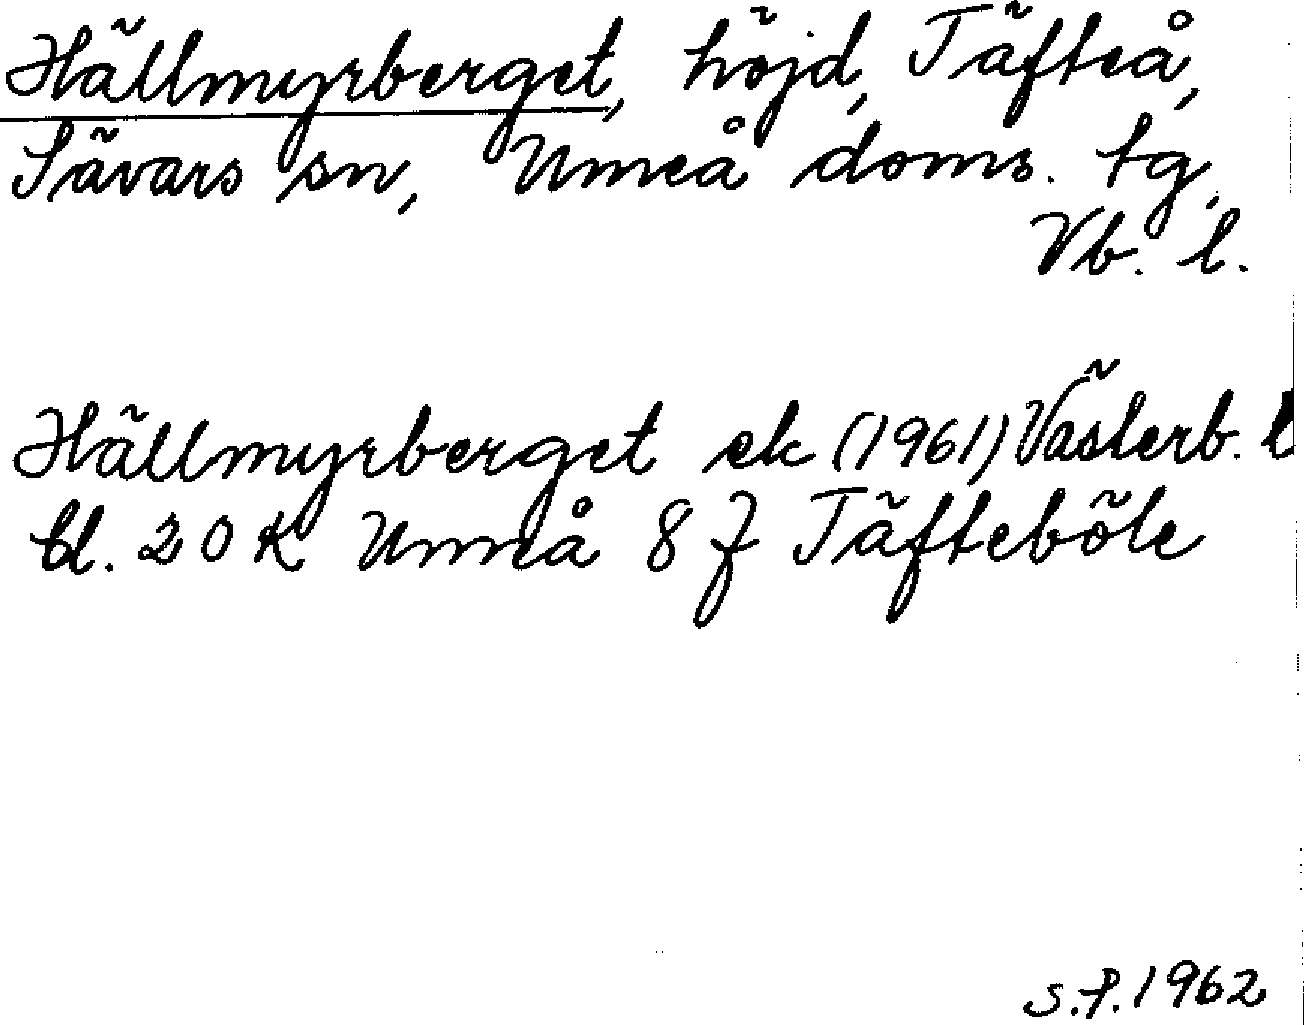 Hällmyrberget, höjd, Täfteå,
Sävars sn, Umeå doms. tg,
Vb. l.
Hällmyrberget ek (1961) Västerb. l
bl. 20 K Umeå 8 f Täfteböle
S.P. 1962